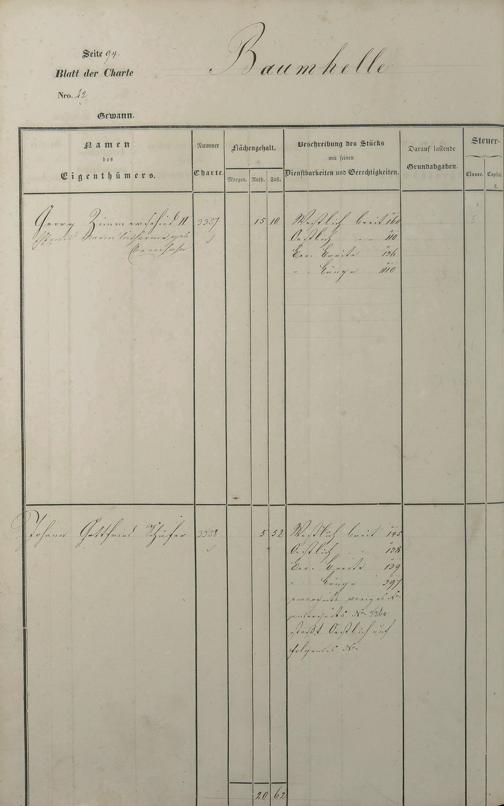 Seite 94.
Blatt der Charte
Nro. 12
Gewann.
Baumhelle
Namen
des
Eigenthümers.
Nummer
Charte.
Flächengehalt.
Morgen. Ruth. Fuß.
Beschreibung des Stücks
mit seinen
Dienstbarkeiten und Gerechtigkeiten.
Darauf lastende
Grundabgaben.
Steuer-
Classe. Capital.
Georg Zimmerschied II 3337 15 10 Westlich breit
Oestlich 110
Red. Breite
" Länge 110
Johann Gottfried Schäfer 3338 5 52 Westlich breit
Oestlich
Red. Breite 139
" Länge 397
stößt Oestlich auf
folgendes No
20 62